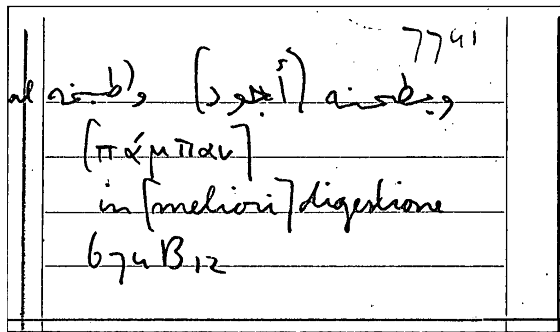 7741
ويطحنه [أجود] وطبخه
[πάμπαν]
in [meliori] digestione
674 B 12